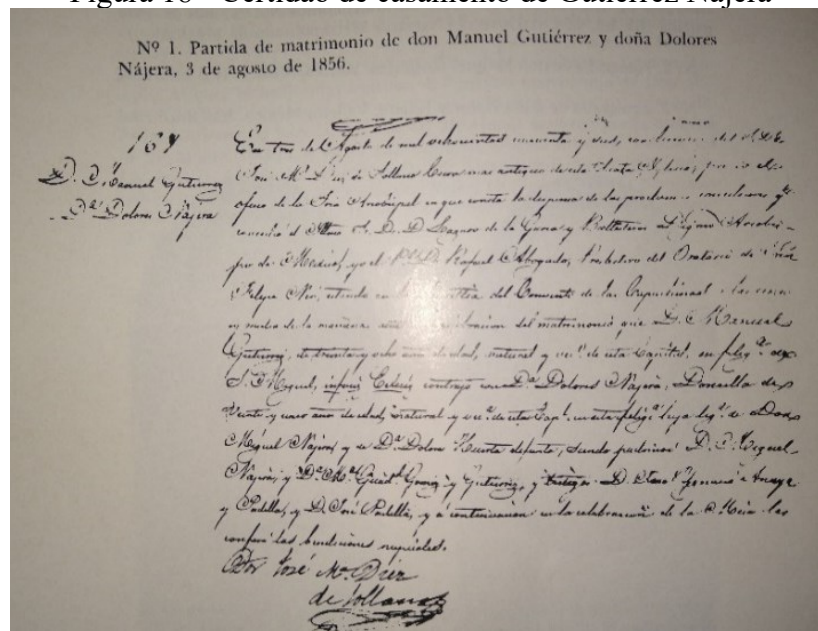 Figura 18 - Certidão de casamento de Gutiérrez Nájera
Nº 1. Partida de matrimonio de don Manuel Gutiérrez y doña Dolores
Nájera, 3 de agosto de 1856.
En tres de Agosto de mil ochocientos cincuenta y seis, con licencia del
D. Manuel Gutierrez
José Mª de Sollano Cura mas antiguo de esta Santa Iglesia, por
Dª Dolores Nájera
oficio de la Sria Arzobispal en que consta la dispensa de las proclamas conciliares
concedió el Illmo Sr. D. D. Lazaro de la Garza y Ballesteros Arzobis-
po de Mexico, yo el Rafael Abogado, Presbitero del Oratorio de San
Felipe Neri, estando en la del Convento de las Capuchinas a las
y media de la mañana del matrimonio que D. Manuel
Gutierrez, de treinta y ocho años de edad, natural y vecº de esta Capital, en feligª de
S. Miguel, infacie Eclesie contrajo con Dª Dolores Nájera, Doncella de
veinte y años de edad, natural y vecª de esta Capl. en esta feligª hija legª de Don
Miguel Nájera y de Dª Dolores Huerta defunta, siendo padrinos D. Miguel
Nájera, y Dª Mª Guadl y Gutierrez, y testigos D. Ignacio Anaya
y Padilla, y D. José Padilla, y á continuacion en la celebracion de la Misa les
conferí las bendiciones nupciales.
Por José Mª Diez
de Sollano